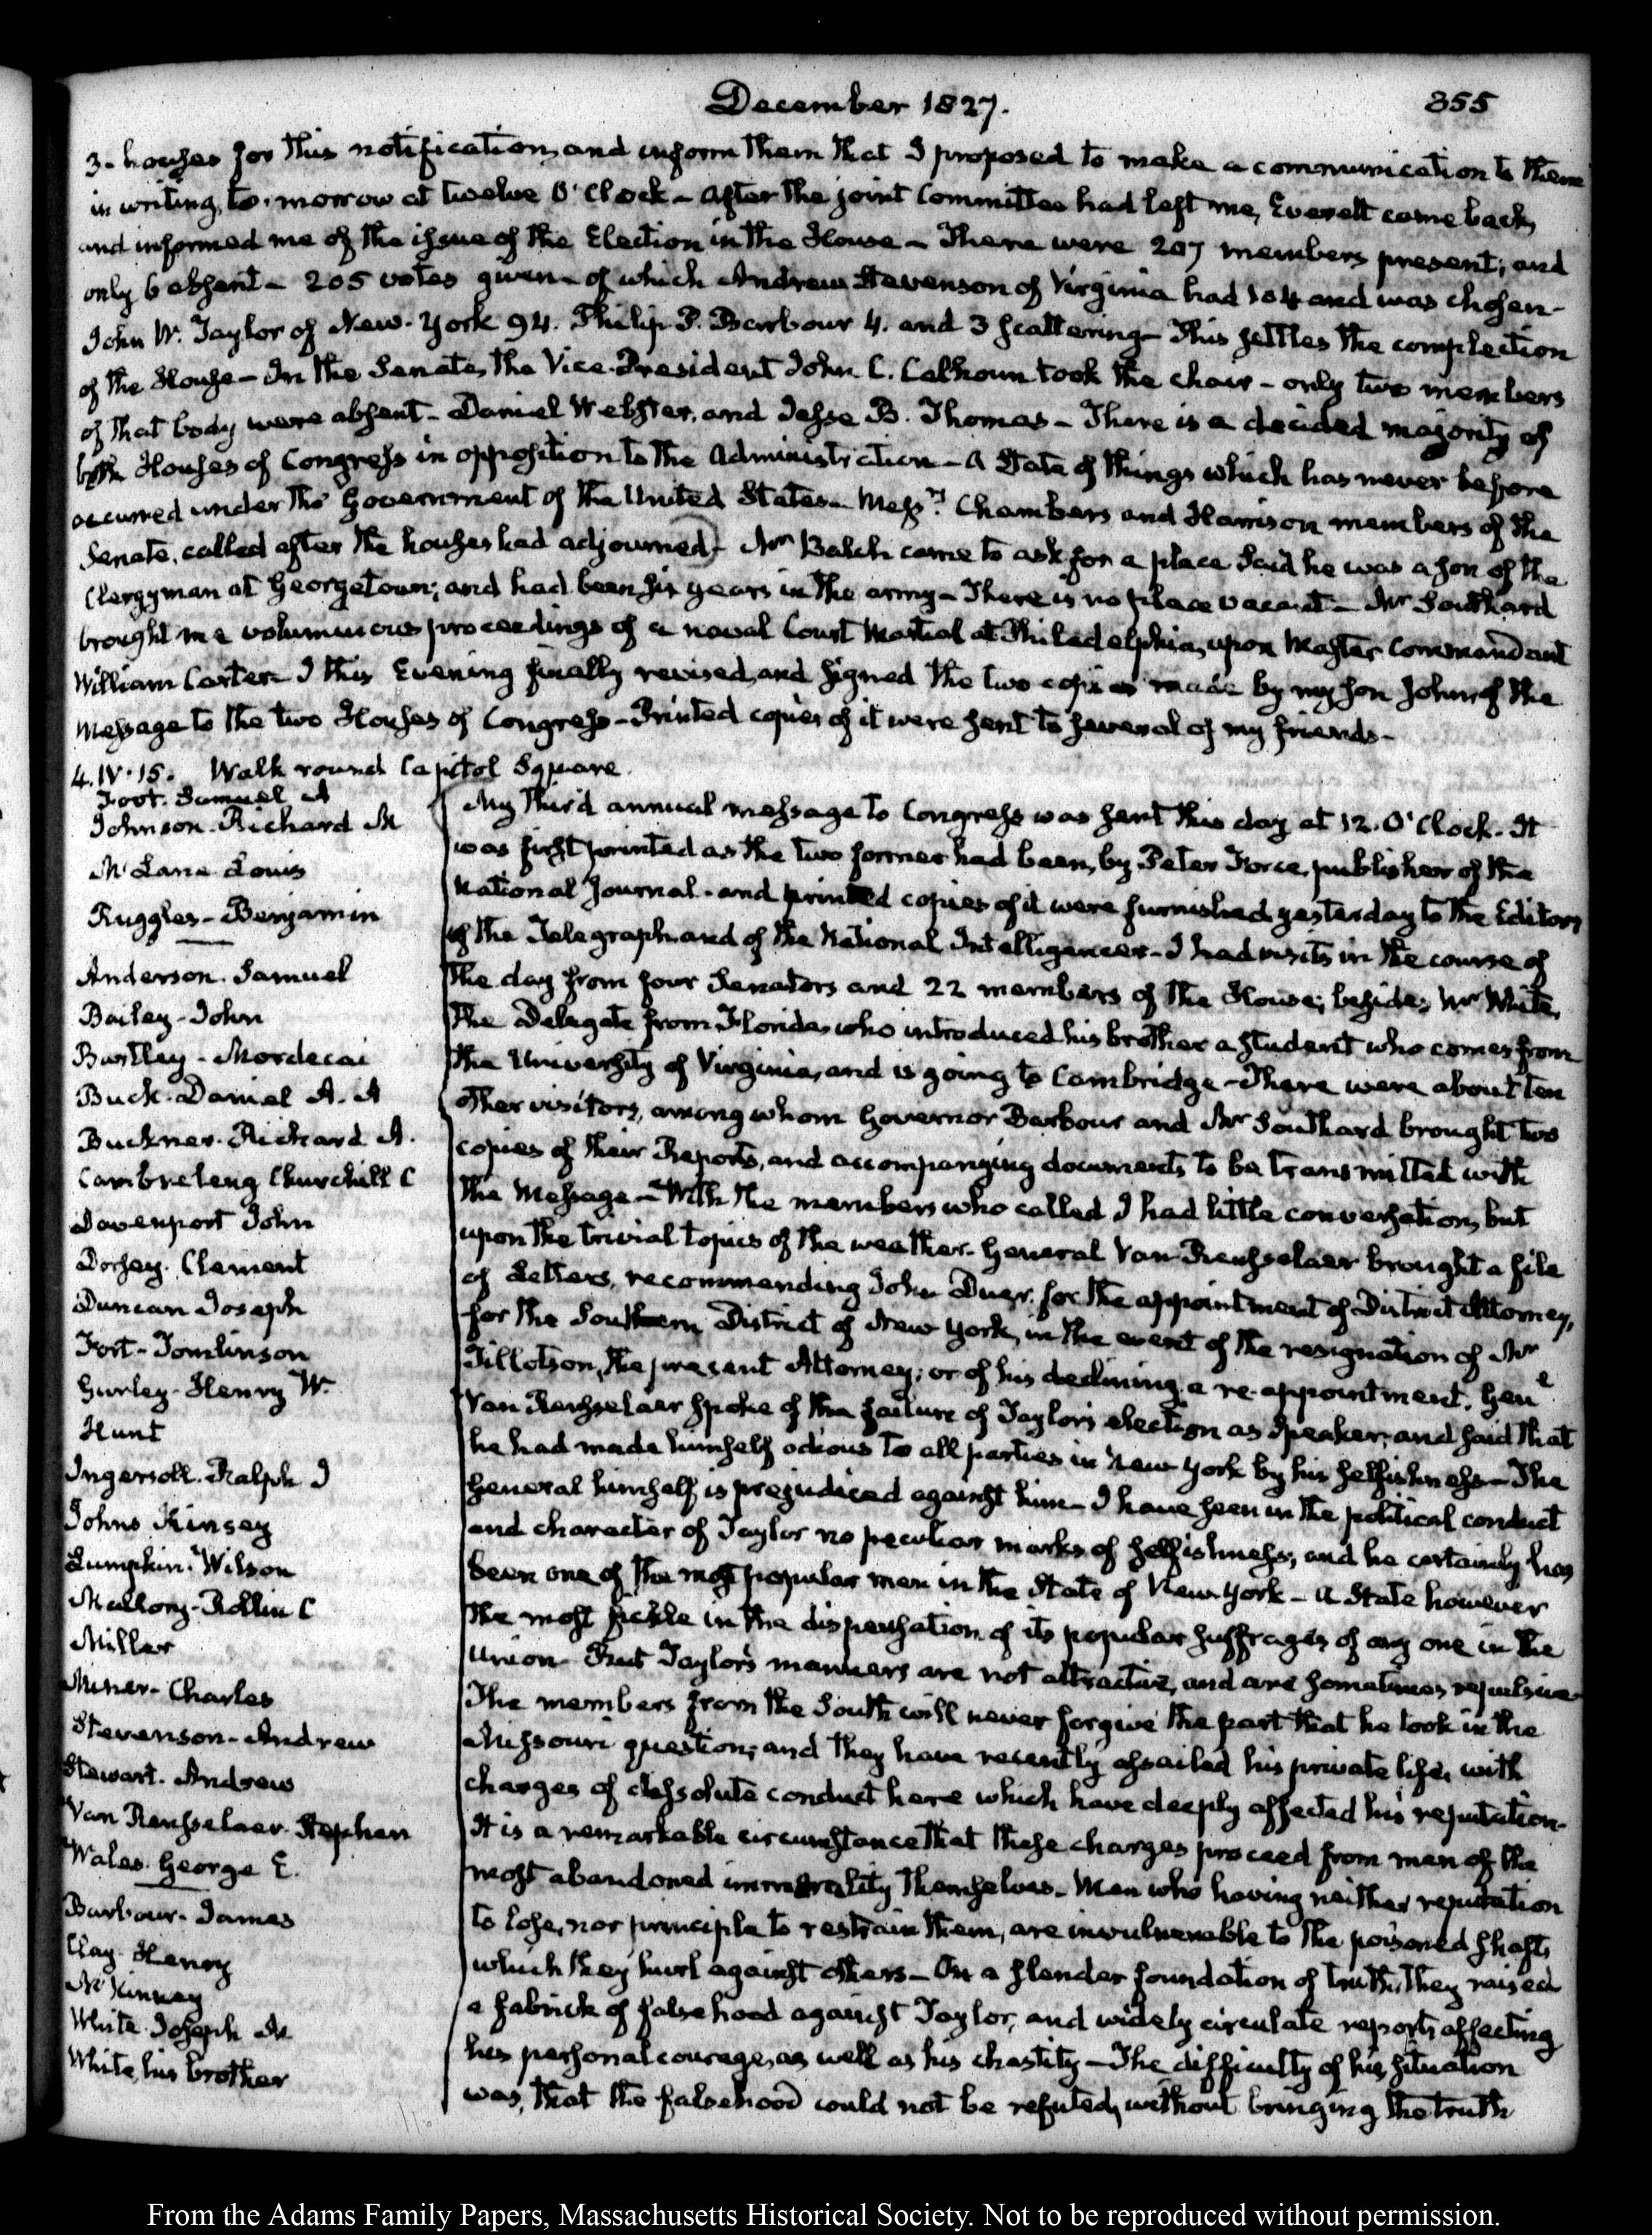 December 1827.
355
3. houses for this notification, and inform them that I proposed to make a communication to them
in writing, to-morrow at twelve O'Clock – After the joint Committee had left me, Everett came back,
and informed me of the issue of the Election in the House – There were 207 members present; and
only 6 absent – 205 votes given – of which Andrew Stevenson of Virginia had 104 and was chosen –
John W. Taylor of New-York 94. Philip P. Barbour 4. and 3 scattering – This settles the complection
of the House – In the Senate, the Vice-President John C. Calhoun took the chair – only two members
of that body were absent – Daniel Webster, and Jesse B. Thomas – There is a decided majority of
both Houses of Congress in opposition to the Administration – A State of things which has never before
occurred under the Government of the United States – Messrs. Chambers and Harrison members of the
Senate, called after the houses had adjourned – Mr Balch came to ask for a place said he was a son of the
Clergyman at Georgetown; and had been six years in the army – There is no place vacant – Mr Southard
brought me voluminous proceedings of a naval Court Martial at Philadelphia, upon Master Commandant
William Carter – I this Evening finally revised, and signed the two copies made by my son John, of the
Message to the two Houses of Congress – Printed copies of it were sent to several of my friends –
4. IV. 15. Walk round Capitol Square.
Foot. Samuel A
Johnson. Richard M
McLane Louis
Ruggles – Benjamin
Anderson. Samuel
Bailey – John
Bartley – Mordecai
Buck. Daniel A. A
Buckner. Richard A.
Cambreleng Churchill C
Davenport John
Dorsey. Clement
Duncan Joseph
Fort – Tomlinson
Gurley – Henry W.
Hunt
Ingersoll. Ralph I
Johns Kinsey
Lumpkin. Wilson
Mallary – Rollin C
Miller
Miner – Charles
Stevenson – Andrew
Stewart. Andrew
Van Rensselaer. Stephen
Wales. George E.
Barbour – James
Clay. Henry
McKinney
White. Joseph M
White, his brother
My third annual message to Congress was sent this day at 12. O'Clock. It
was first printed as the two former had been, by Peter Force, publisher of the
National Journal – and printed copies of it were furnished yesterday to the Editors
of the Telegraph and of the National Intelligencer – I had visits in the course of
the day from four Senators and 22 members of the House; besides Mr White,
the Delegate from Florida, who introduced his brother a student who comes from
the University of Virginia, and is going to Cambridge – There were about ten
other visitors, among whom Governor Barbour and Mr Southard brought two
copies of their Reports, and accompanying documents to be transmitted with
the Message – With the members who called I had little conversation, but
upon the trivial topics of the weather. General Van Rensselaer brought a file
of Letters, recommending John Duer. for the appointment of District Attorney,
for the Southern District of New York, in the event of the resignation of Mr
Tillotson, the present Attorney; or of his declining a re-appointment. Genl
Van Rensselaer spoke of the failure of Taylor's election as Speaker, and said that
he had made himself odious to all parties in New York by his selfishness – The
General himself is prejudiced against him – I have seen in the political conduct
and character of Taylor no peculiar marks of selfishness, and he certainly has
been one of the most popular men in the State of New-York – a State however
the most fickle in the dispensation of its popular suffrages of any one in the
Union – But Taylor's manners are not attractive, and are sometimes repulsive
The members from the South will never forgive the part that he took in the
Missouri question; and they have recently assailed his private life, with
charges of dissolute conduct here which have deeply affected his reputation –
It is a remarkable circumstance that these charges proceed from men of the
most abandoned immorality themselves – Men who having neither reputation
to lose, nor principle to restrain them, are invulnerable to the poisoned shafts
which they hurl against others – On a slender foundation of truth, they raised
a fabrick of falsehood against Taylor, and widely circulate reports affecting
his personal courage, as well as his chastity – The difficulty of his situation
was, that the falsehood could not be refuted, without bringing the truth
From the Adams Family Papers, Massachusetts Historical Society. Not to be reproduced without permission.